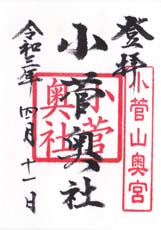 登拝
小菅山奥宮
小菅奥社
小菅
奥社
令和三年 四月十一日